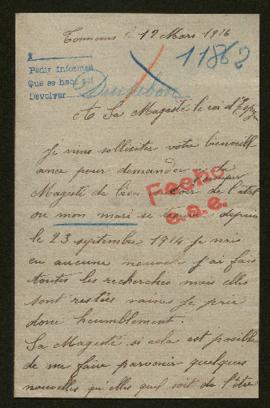 Tonneins le 17 Mars 1916
11862
Pedir informes
Que se haga así
Devolver
A Sa Magesté le roi d'
Je vins solliciter votre bienveill
ance pour demander
Magesté de
ou mon mari se depuis
Fecho
e.a.e.
le 23 septembre 1914 je nais
eu aucune nouvele j'ai fais
toutes les recherches mais elles
sont restiés vaines je prie
donc humblement
Sa Magesté si cela est possible
de me faire parvenir quelques
nouvelles qu'elles quel soit de l'être